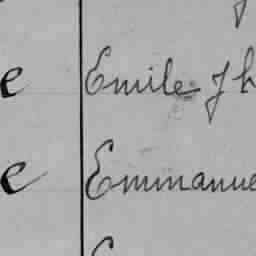 e Emile Jh
e Emmanue